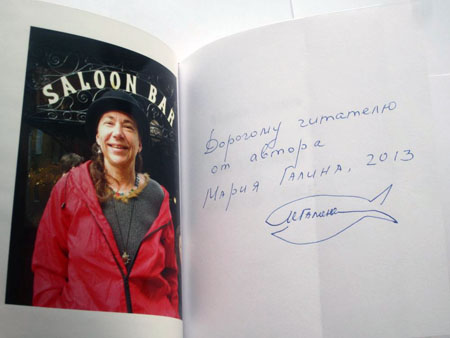 SALOON BAR
Дорогому читателю
от автора
Мария Галина, 2013
МГалина